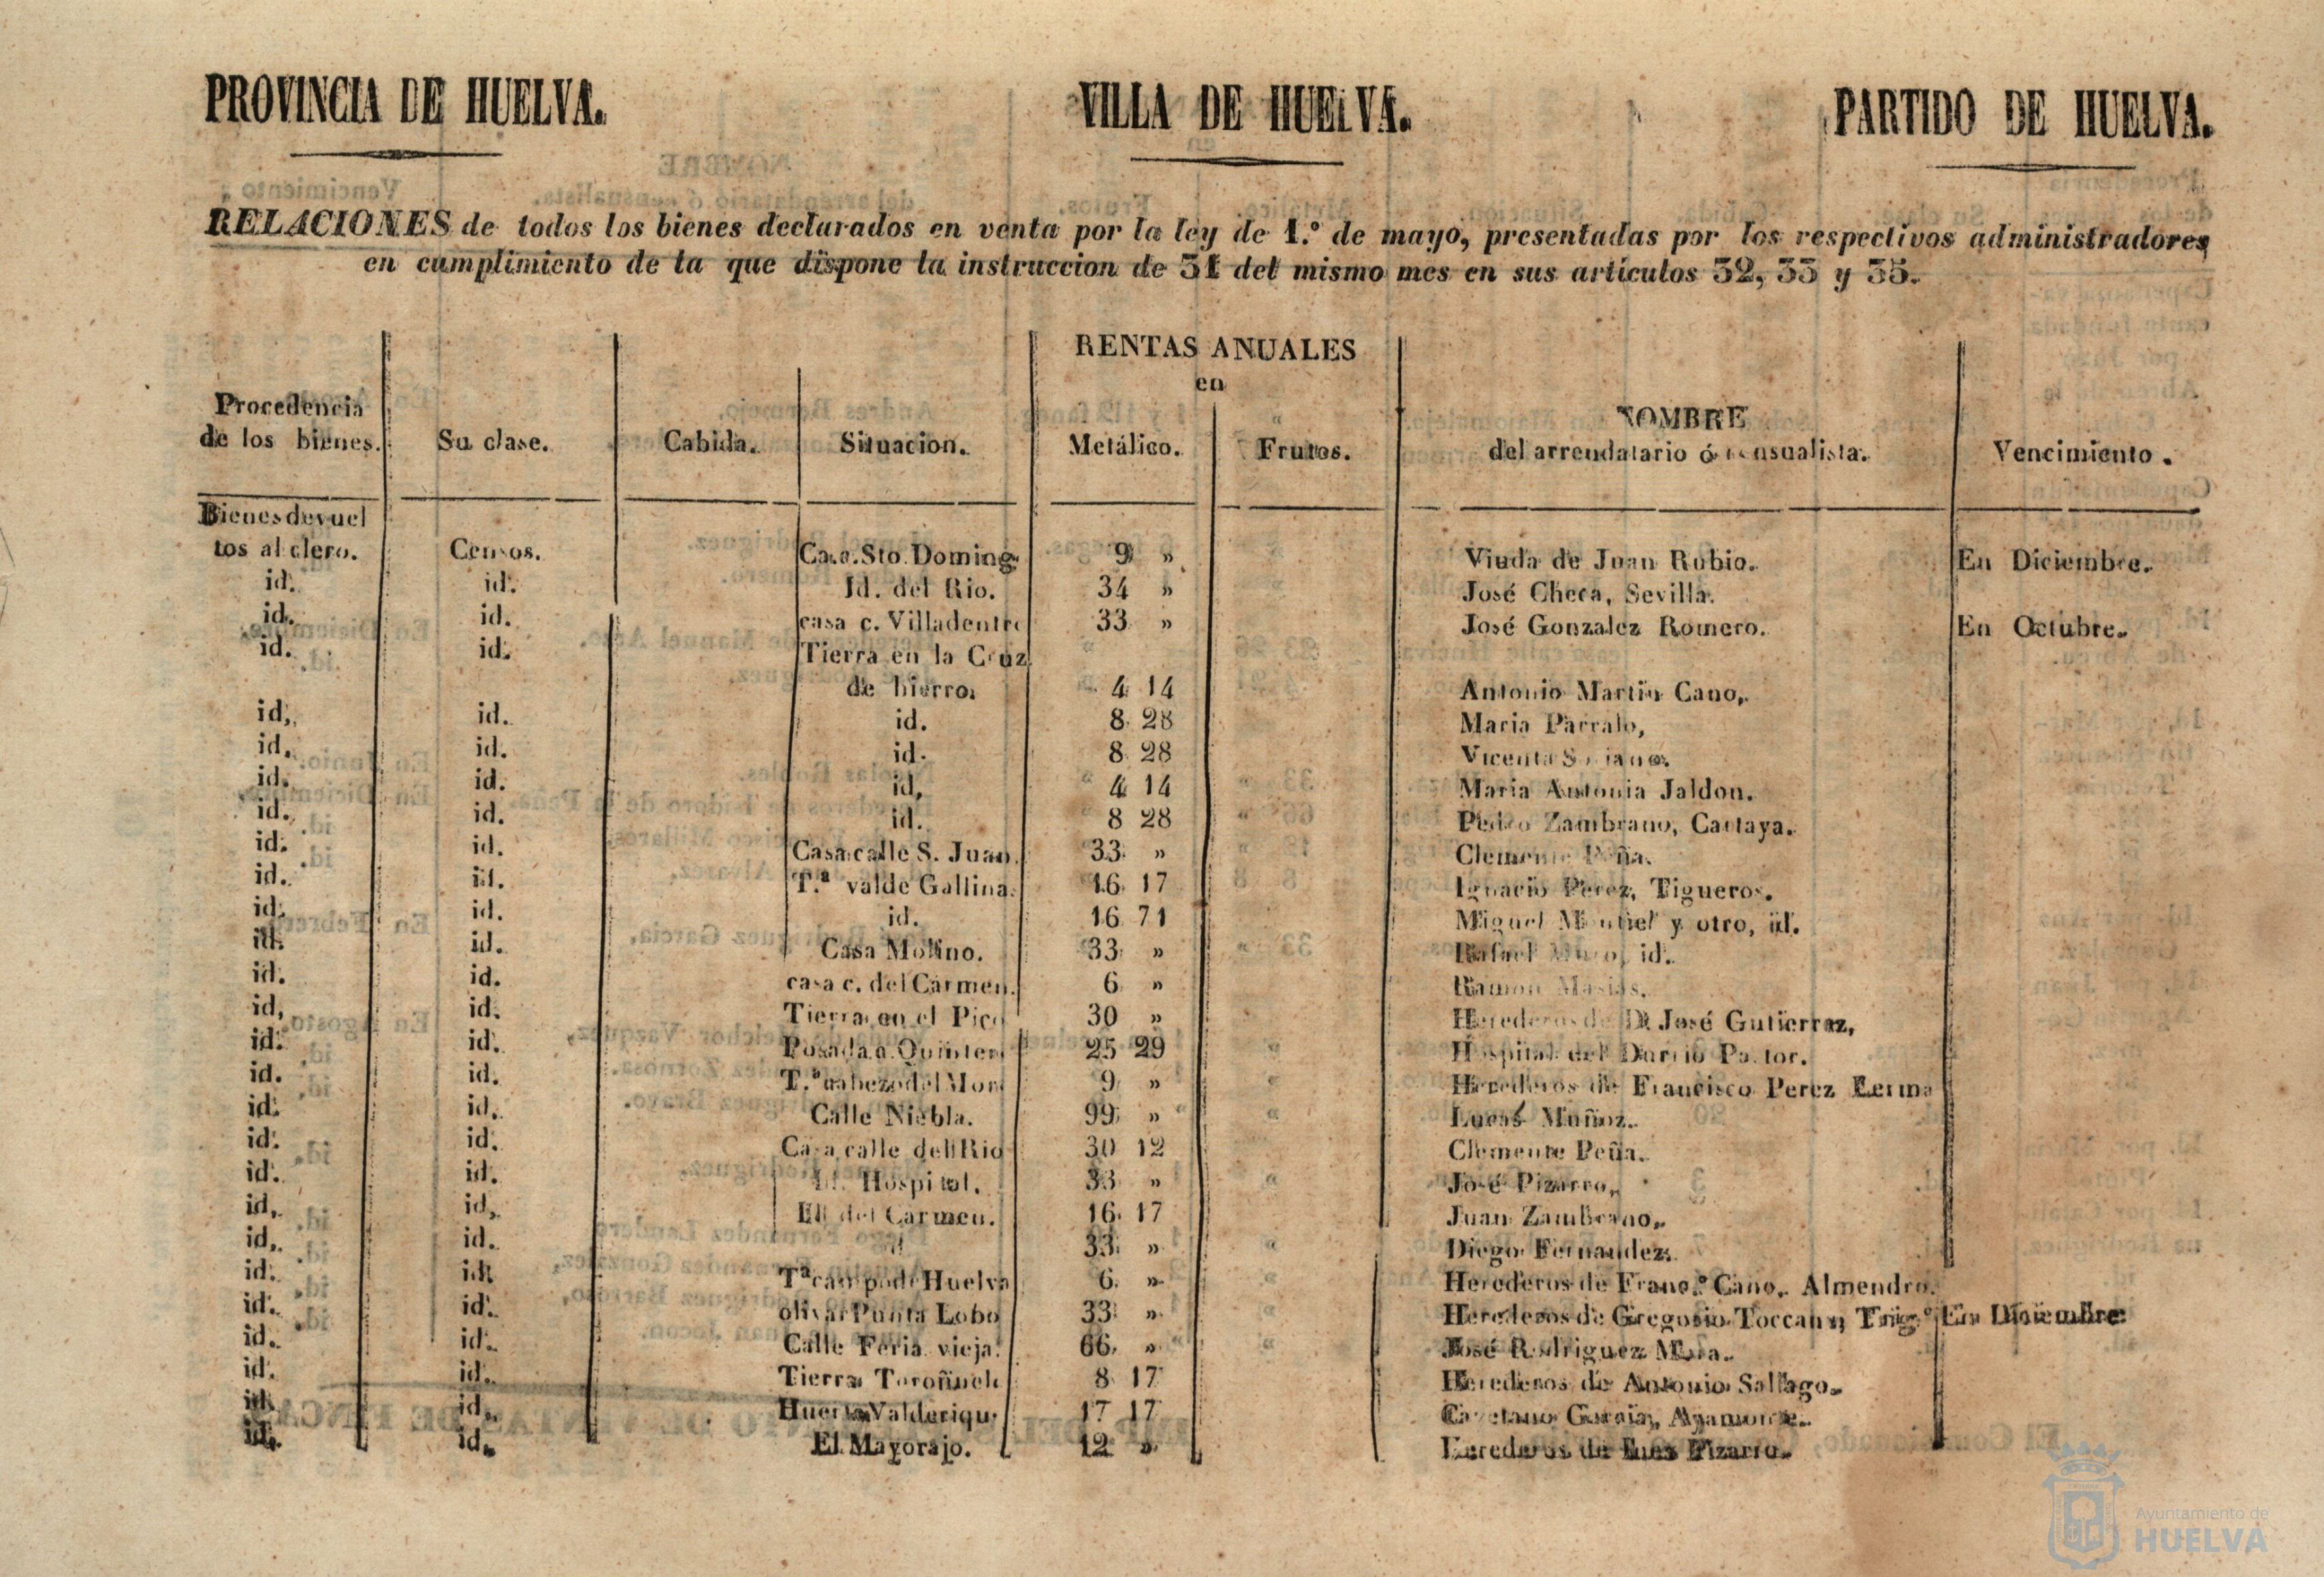 PROVINCIA DE HUELVA. VILLA DE HUELVA. PARTIDO DE HUELVA.
RELACIONES de todos los bienes declarados en venta por la ley de 1.º de mayo, presentadas por los respectivos administradores
en cumplimiento de la que dispone la instruccion de 31 del mismo mes en sus artículos 32, 33 y 35.
RENTAS ANUALES
en
Procedencia de los bienes. Su clase. Cabida. Situacion. Metálico. Frutos. NOMBRE del arrendatario ó censualista. Vencimiento.
Bienes devuel
tos al clero. Censos. Casa. Sto. Doming. 9 » Viuda de Juan Rubio. En Diciembre.
id. id. Id. del Rio. 34 » José Checa, Sevilla.
id. id. casa c. Villadentro 33 » José Gonzalez Romero. En Octubre.
id. id. Tierra en la Cruz
de hierro. 4 14 Antonio Martin Cano,
id. id. id. 8 28 Maria Parralo,
id. id. id. 8 28 Vicenta
id. id. id. 4 14 Maria Antonia Jaldon.
id. id. id. 8 28 Pedro Zambrano, Cartaya.
id. id. Casa calle S. Juan. 33 » Clemente Peña.
id. id. T.ª valde Gallina. 16 17 Ignacio Perez, Tigueros.
id. id. id. 16 71 Miguel Montiel y otro, id.
id. id. Casa Molino. 33 » Rafael id.
id. id. casa c. del Carmen. 6 » Ramon Masias.
id. id. Tierra en el Pico 30 » Herederos de D. José Gutierrez,
id. id. Posada a. Quinter 25 29 Hospital del Pastor.
id. id. T.ª cabezo del Mon 9 » Herederos de Francisco Perez Lerma
id. id. Calle Niebla. 99 » Lucas Muñoz.
id. id. Casa calle del Rio 30 12 Clemente Peña.
id. id. Id. Hospital. 33 » José Pizarro,
id. id. Id. del Carmen. 16 17 Juan Zambrano,
id. id. id. 33 » Diego Fernandez.
id. id. T.ª campo de Huelva 6 » Herederos de Franc.º Cano, Almendro.
id. id. olivar Punta Lobo 33 » Herederos de Gregorio Toccano, Trig.º En Diciembre
id. id. Calle Feria vieja. 66 » José Rodriguez Mora.
id. id. Tierra 8 17 Herederos de Antonio Sallago.
id. id. Huerta 17 17 Cayetano Garcia, Ayamonte.
id. id. El Mayorajo. 12 » Herederos de Pizarro.
Ayuntamiento de
HUELVA